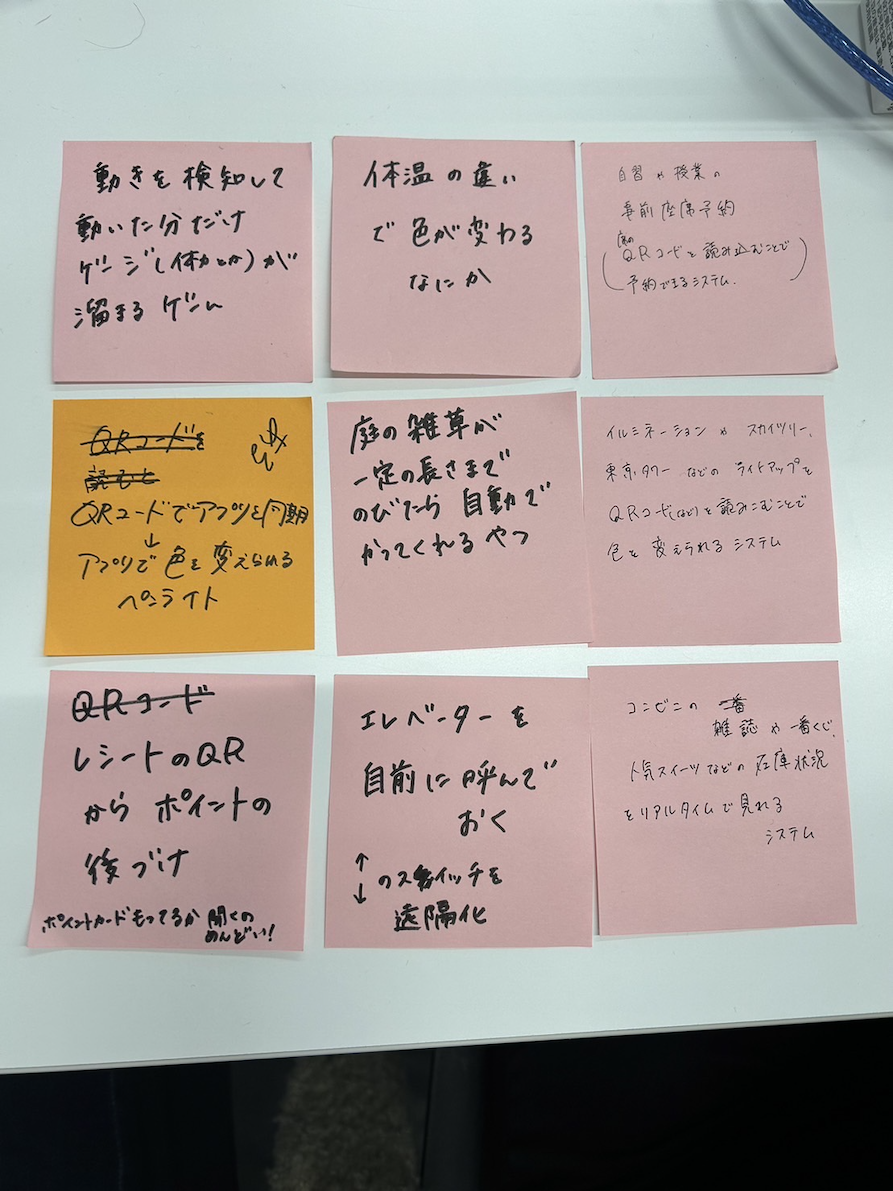 動きを検知して
動いた分だけ
ゲージ(体力とか)が
溜まるゲーム
体温の違い
で色が変わる
なにか
自習や授業の
事前座席予約
(席のQRコードを読み込むことで
予約できるシステム.)
QRコードを
読むと
QRコードでアプリを同期
↓
アプリで色を変えられる
ペンライト
庭の雑草が
一定の長さまで
のびたら自動で
かってくれるやつ
イルミネーションやスカイツリー、
東京タワーなどのライトアップを
QRコード(など)を読みこむことで
色を変えられるシステム
QRコード
レシートのQR
からポイントの
後づけ
ポイントカードもってるか聞くの
めんどい!
エレベーターを
自前に呼んで
おく
↑
↓のスイッチを
遠隔化
コンビニの一番
雑誌や一番くじ、
人気スイーツなどの在庫状況
をリアルタイムで見れる
システム